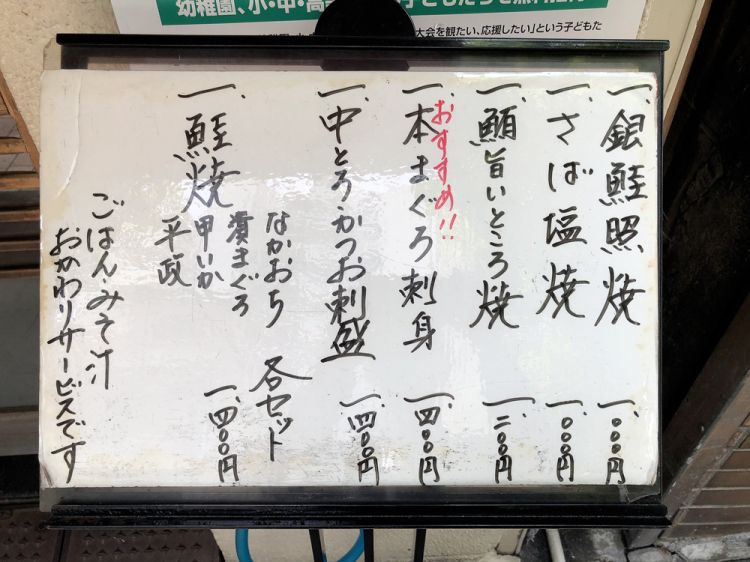 大会を観たい、応援したい」という子どもた
一、銀鮭照焼 一、〇〇〇円
一、さば塩焼 一、〇〇〇円
一、鰤旨いところ焼 一、二〇〇円
おすすめ!!
一、本まぐろ刺身 一、四〇〇円
一、中とろかつお刺盛 一、四〇〇円
一、鮭焼
なかおち
漬まぐろ
甲いか
平政
各セット
一、四〇〇円
ごはん・みそ汁
おかわりサービスです